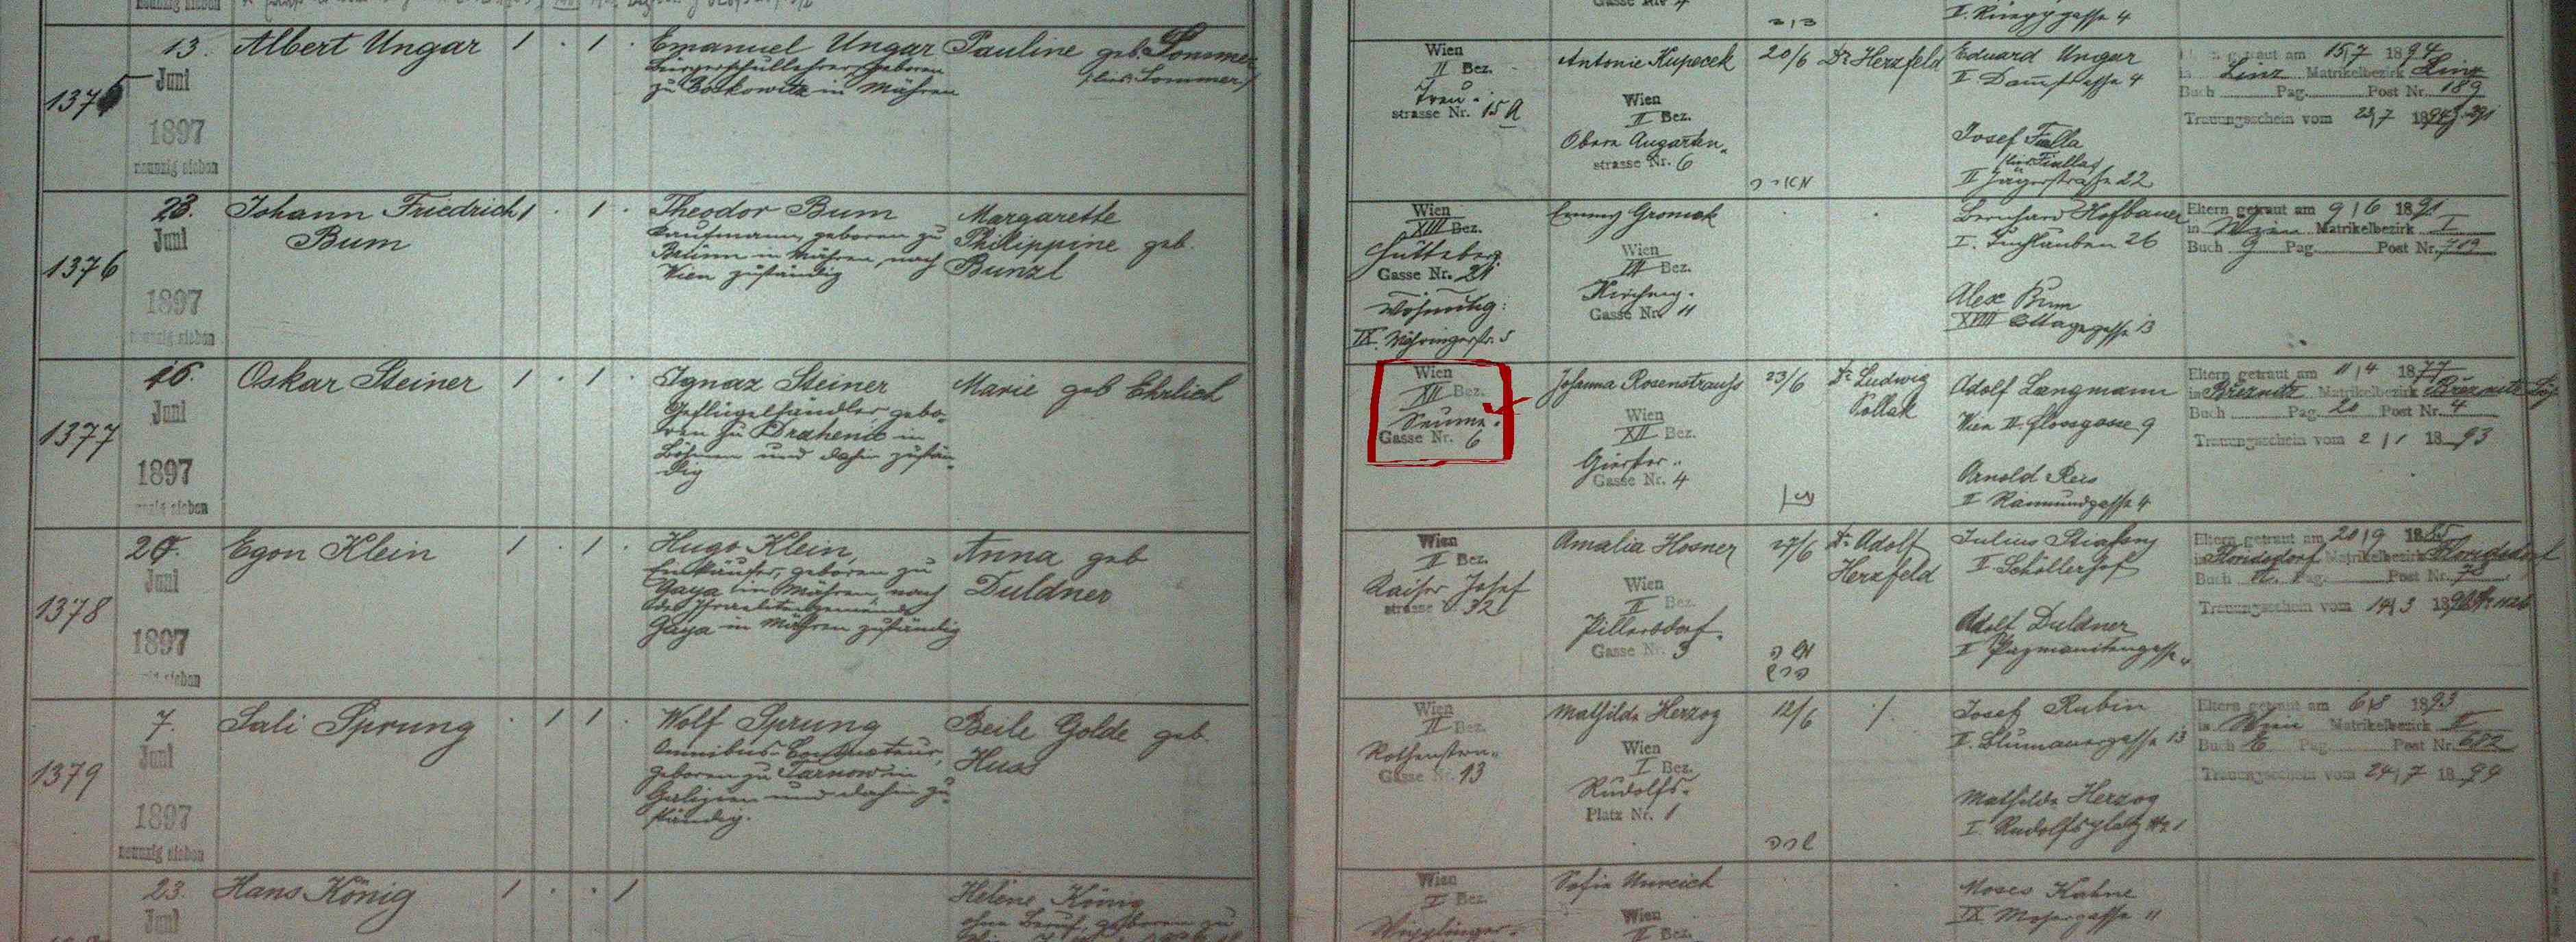 13.
Juni
1897
neunzig sieben
Albert Ungar
1 . 1 .
Emanuel Ungar
Bürgerschullehrer, geboren
zu Boskowitz in Mähren
Pauline geb. Sommer
(lies: Sommer)
Wien
II Bez.
Treu-
strasse Nr. 15A
Antonie Kupecek
Wien
II Bez.
Obere Augarten-
strasse Nr. 6
20/6
Dr Herzfeld
Eduard Ungar
II Dampfgasse 4
Josef Fialla
(lies Fialla)
II Jägerstraße 22
getraut am 15/7 1894
in Linz Matrikelbezirk Linz
Buch Pag. Post Nr. 189
Trauungsschein vom 23/7
1376
23.
Juni
1897
neunzig sieben
Johann Friedrich
Bum
1 . 1 .
Theodor Bum
Kaufmann, geboren zu
Brünn in Mähren, nach
Wien zuständig
Margarethe
Philippine geb.
Bunzl
Wien
XIII Bez.
Hütteberg
Gasse Nr. 21
Wohnung:
IX. Währingerstr. 5
Emmy Gromak
Wien
Bez.
Gasse Nr. 11
Bernhard Hofbauer
I. Tuchlauben 26
Alex Bum
XVIII Cottagegasse 13
Eltern getraut am 9/6 1891
in Wien Matrikelbezirk I
Buch g Pag. Post Nr. 719
1377
16.
Juni
1897
sieben
Oskar Steiner
1 . 1 .
Ignaz Steiner
Geflügelhändler, gebo-
ren zu Drahenic in
Böhmen und dahin zustän-
dig
Marie geb Ehrlich
Wien
XII Bez.
Seume-
Gasse Nr. 6
Johanna Rosenstrauss
Wien
XII Bez.
Gierster-
Gasse Nr. 4
23/6
Dr Ludwig
Pollak
Adolf Langmann
Wien II. Flossgasse 9
Arnold Reis
II Raimundgasse 4
Eltern getraut am 11/4 1877
in Březnitz Matrikelbezirk Březnitz
Buch Pag. 20 Post Nr. 4
Trauungsschein vom 2/1 1893
1378
20.
Juni
1897
sieben
Egon Klein
1 . 1 .
Hugo Klein,
Einkäufer, geboren zu
Gaya in Mähren, nach
der Israelitengemeinde
Gaya in Mähren zuständig
Anna geb
Duldner
Wien
II Bez.
Kaiser Josef
strasse 32
Amalia Hosner
Wien
II Bez.
Pillersdorf-
Gasse Nr. 3
27/6
Dr Adolf
Herzfeld
Julius Stiafsny
II. Schöllerhof
Adolf Duldner
II Pazmanitengasse
Eltern getraut am 20/9 1885
in Floridsdorf Matrikelbezirk Floridsdorf
Buch Pag. Post Nr.
Trauungsschein vom
1379
7.
Juni
1897
neunzig sieben
Sali Sprung
. 1 1 .
Wolf Sprung
Omnibus-Conducteur,
geboren zu Tarnow in
Galizien und dahin zu-
ständig.
Beile Golde geb.
Huss
Wien
II Bez.
Rothenstern-
Gasse Nr. 13
Mathilde Herzog
Wien
I Bez.
Rudolfs-
Platz Nr. 1
12/6
Josef Rubin
II. Blumauergasse 13
Mathilde Herzog
I. Rudolfsplatz Nr 1
Eltern getraut am 6/8 1893
in Wien Matrikelbezirk II
Buch Pag. Post Nr. 682
Trauungsschein vom 24/7 18
23.
Juni
Hans König
1 . . 1
Helene König
ohne Beruf, geboren zu
Wien
I Bez.
Wipplinger-
Sofie Unreich
Wien
II Bez.
Moses Kahne
IX Mosergasse 11